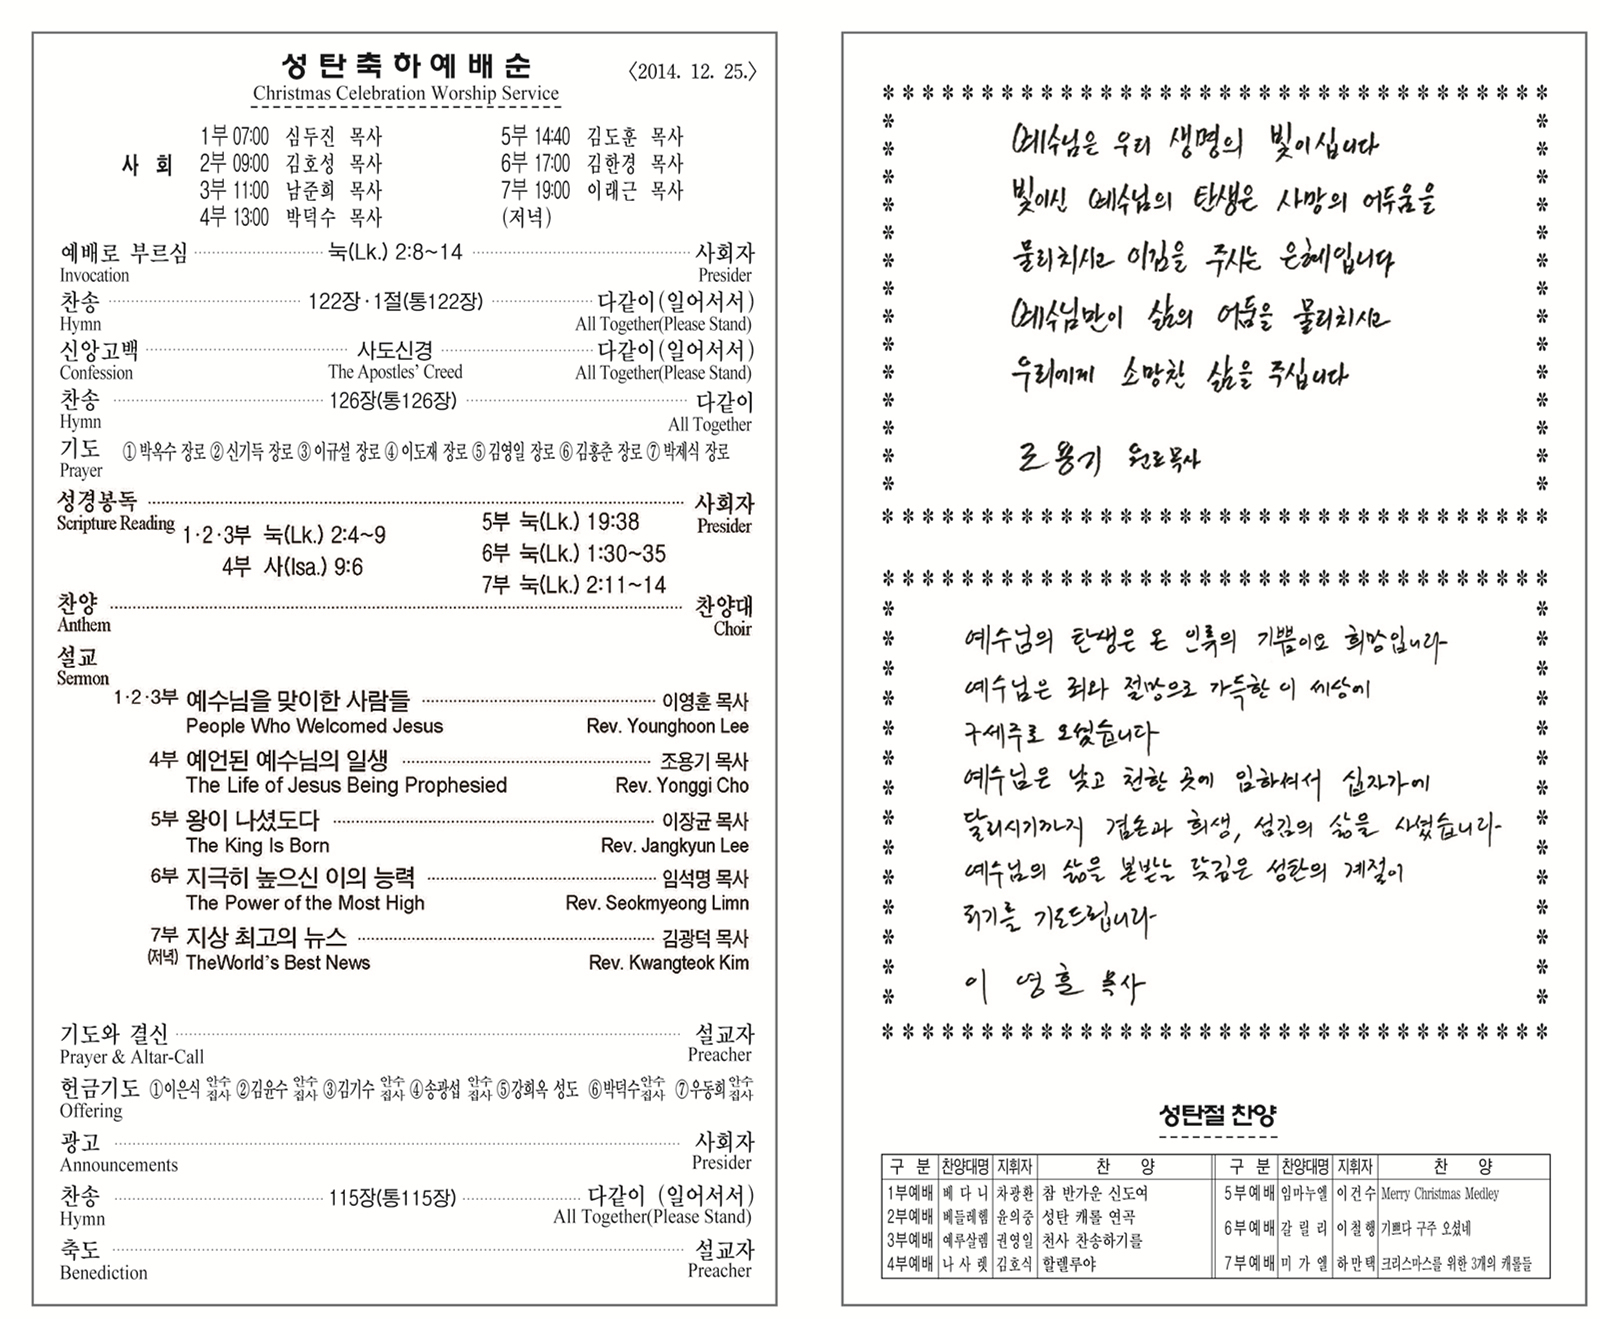 성탄축하예배순
〈2014. 12. 25.〉
Christmas Celebration Worship Service
사 회
1부 07:00 심두진 목사
2부 09:00 김호성 목사
3부 11:00 남준희 목사
4부 13:00 박덕수 목사
5부 14:40 김도훈 목사
6부 17:00 김한경 목사
7부 19:00 이래근 목사
(저녁)
예배로 부르심 눅(Lk.) 2:8~14 사회자
Invocation Presider
찬송 122장·1절(통122장) 다같이(일어서서)
Hymn All Together(Please Stand)
신앙고백 사도신경 다같이(일어서서)
Confession The Apostles' Creed All Together(Please Stand)
찬송 126장(통126장) 다같이
Hymn All Together
기도 ①박옥수 장로 ②신기득 장로 ③이규설 장로 ④이도재 장로 ⑤김영일 장로 ⑥김홍춘 장로 ⑦박제식 장로
Prayer
성경봉독 사회자
Scripture Reading Presider
1·2·3부 눅(Lk.) 2:4~9
4부 사(Isa.) 9:6
5부 눅(Lk.) 19:38
6부 눅(Lk.) 1:30~35
7부 눅(Lk.) 2:11~14
찬양 찬양대
Anthem Choir
설교
Sermon
1·2·3부 예수님을 맞이한 사람들 이영훈 목사
People Who Welcomed Jesus Rev. Younghoon Lee
4부 예언된 예수님의 일생 조용기 목사
The Life of Jesus Being Prophesied Rev. Yonggi Cho
5부 왕이 나셨도다 이장균 목사
The King Is Born Rev. Jangkyun Lee
6부 지극히 높으신 이의 능력 임석명 목사
The Power of the Most High Rev. Seokmyeong Limn
7부 지상 최고의 뉴스 김광덕 목사
(저녁) TheWorld's Best News Rev. Kwangteok Kim
기도와 결신 설교자
Prayer & Altar-Call Preacher
헌금기도 ①이은식 안수집사 ②김윤수 안수집사 ③김기수 안수집사 ④송광섭 안수집사 ⑤강희옥 성도 ⑥박덕수 안수집사 ⑦우동희 안수집사
Offering
광고 사회자
Announcements Presider
찬송 115장(통115장) 다같이 (일어서서)
Hymn All Together(Please Stand)
축도 설교자
Benediction Preacher
예수님은 우리 생명의 빛이십니다
빛이신 예수님의 탄생은 사망의 어두움을
물리치시고 이김을 주시는 은혜입니다
예수님만이 삶의 어둠을 물리치시고
우리에게 소망찬 삶을 주십니다
조용기 원로목사
예수님의 탄생은 온 인류의 기쁨이요 희망입니다
예수님은 죄와 절망으로 가득한 이 세상에
구세주로 오셨습니다
예수님은 낮고 천한 곳에 임하셔서 십자가에
달리시기까지 겸손과 희생, 섬김의 삶을 사셨습니다
예수님의 삶을 본받는 닮김은 성탄의 계절이
되기를 기도드립니다
이영훈 목사
성탄절 찬양
구 분 찬양대명 지휘자 찬 양
1부예배 베다니 차광환 참 반가운 신도여
2부예배 베들레헴 윤의중 성탄 캐롤 연곡
3부예배 예루살렘 권영일 천사 찬송하기를
4부예배 나사렛 김호식 할렐루야
구 분 찬양대명 지휘자 찬 양
5부예배 임마누엘 이건수 Merry Christmas Medley
6부예배 갈릴리 이철행 기쁘다 구주 오셨네
7부예배 미가엘 하만택 크리스마스를 위한 3개의 캐롤들